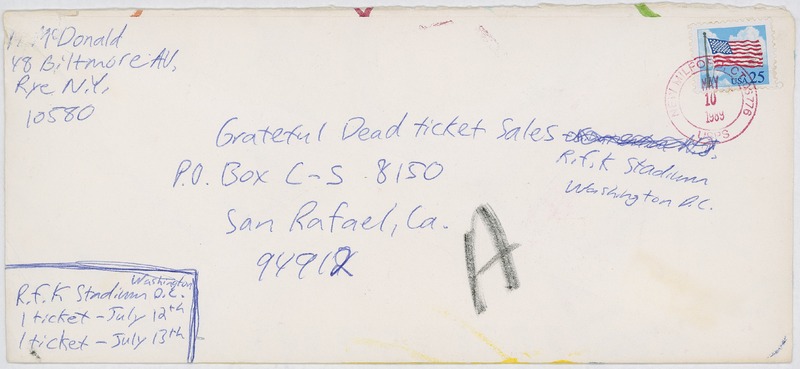 McDonald
48 Biltmore AV,
Rye N.Y,
10580
USA 25
NEW MILFORD, CT 06776
MAY
10
1989
USPS
Grateful Dead ticket Sales
P.O. Box C-S 8150
San Rafael, Ca.
94912
R.F.K Stadium
Washington D.C.
A
Washington
R.F.K Stadium D.C.
1 ticket - July 12th
1 ticket - July 13th